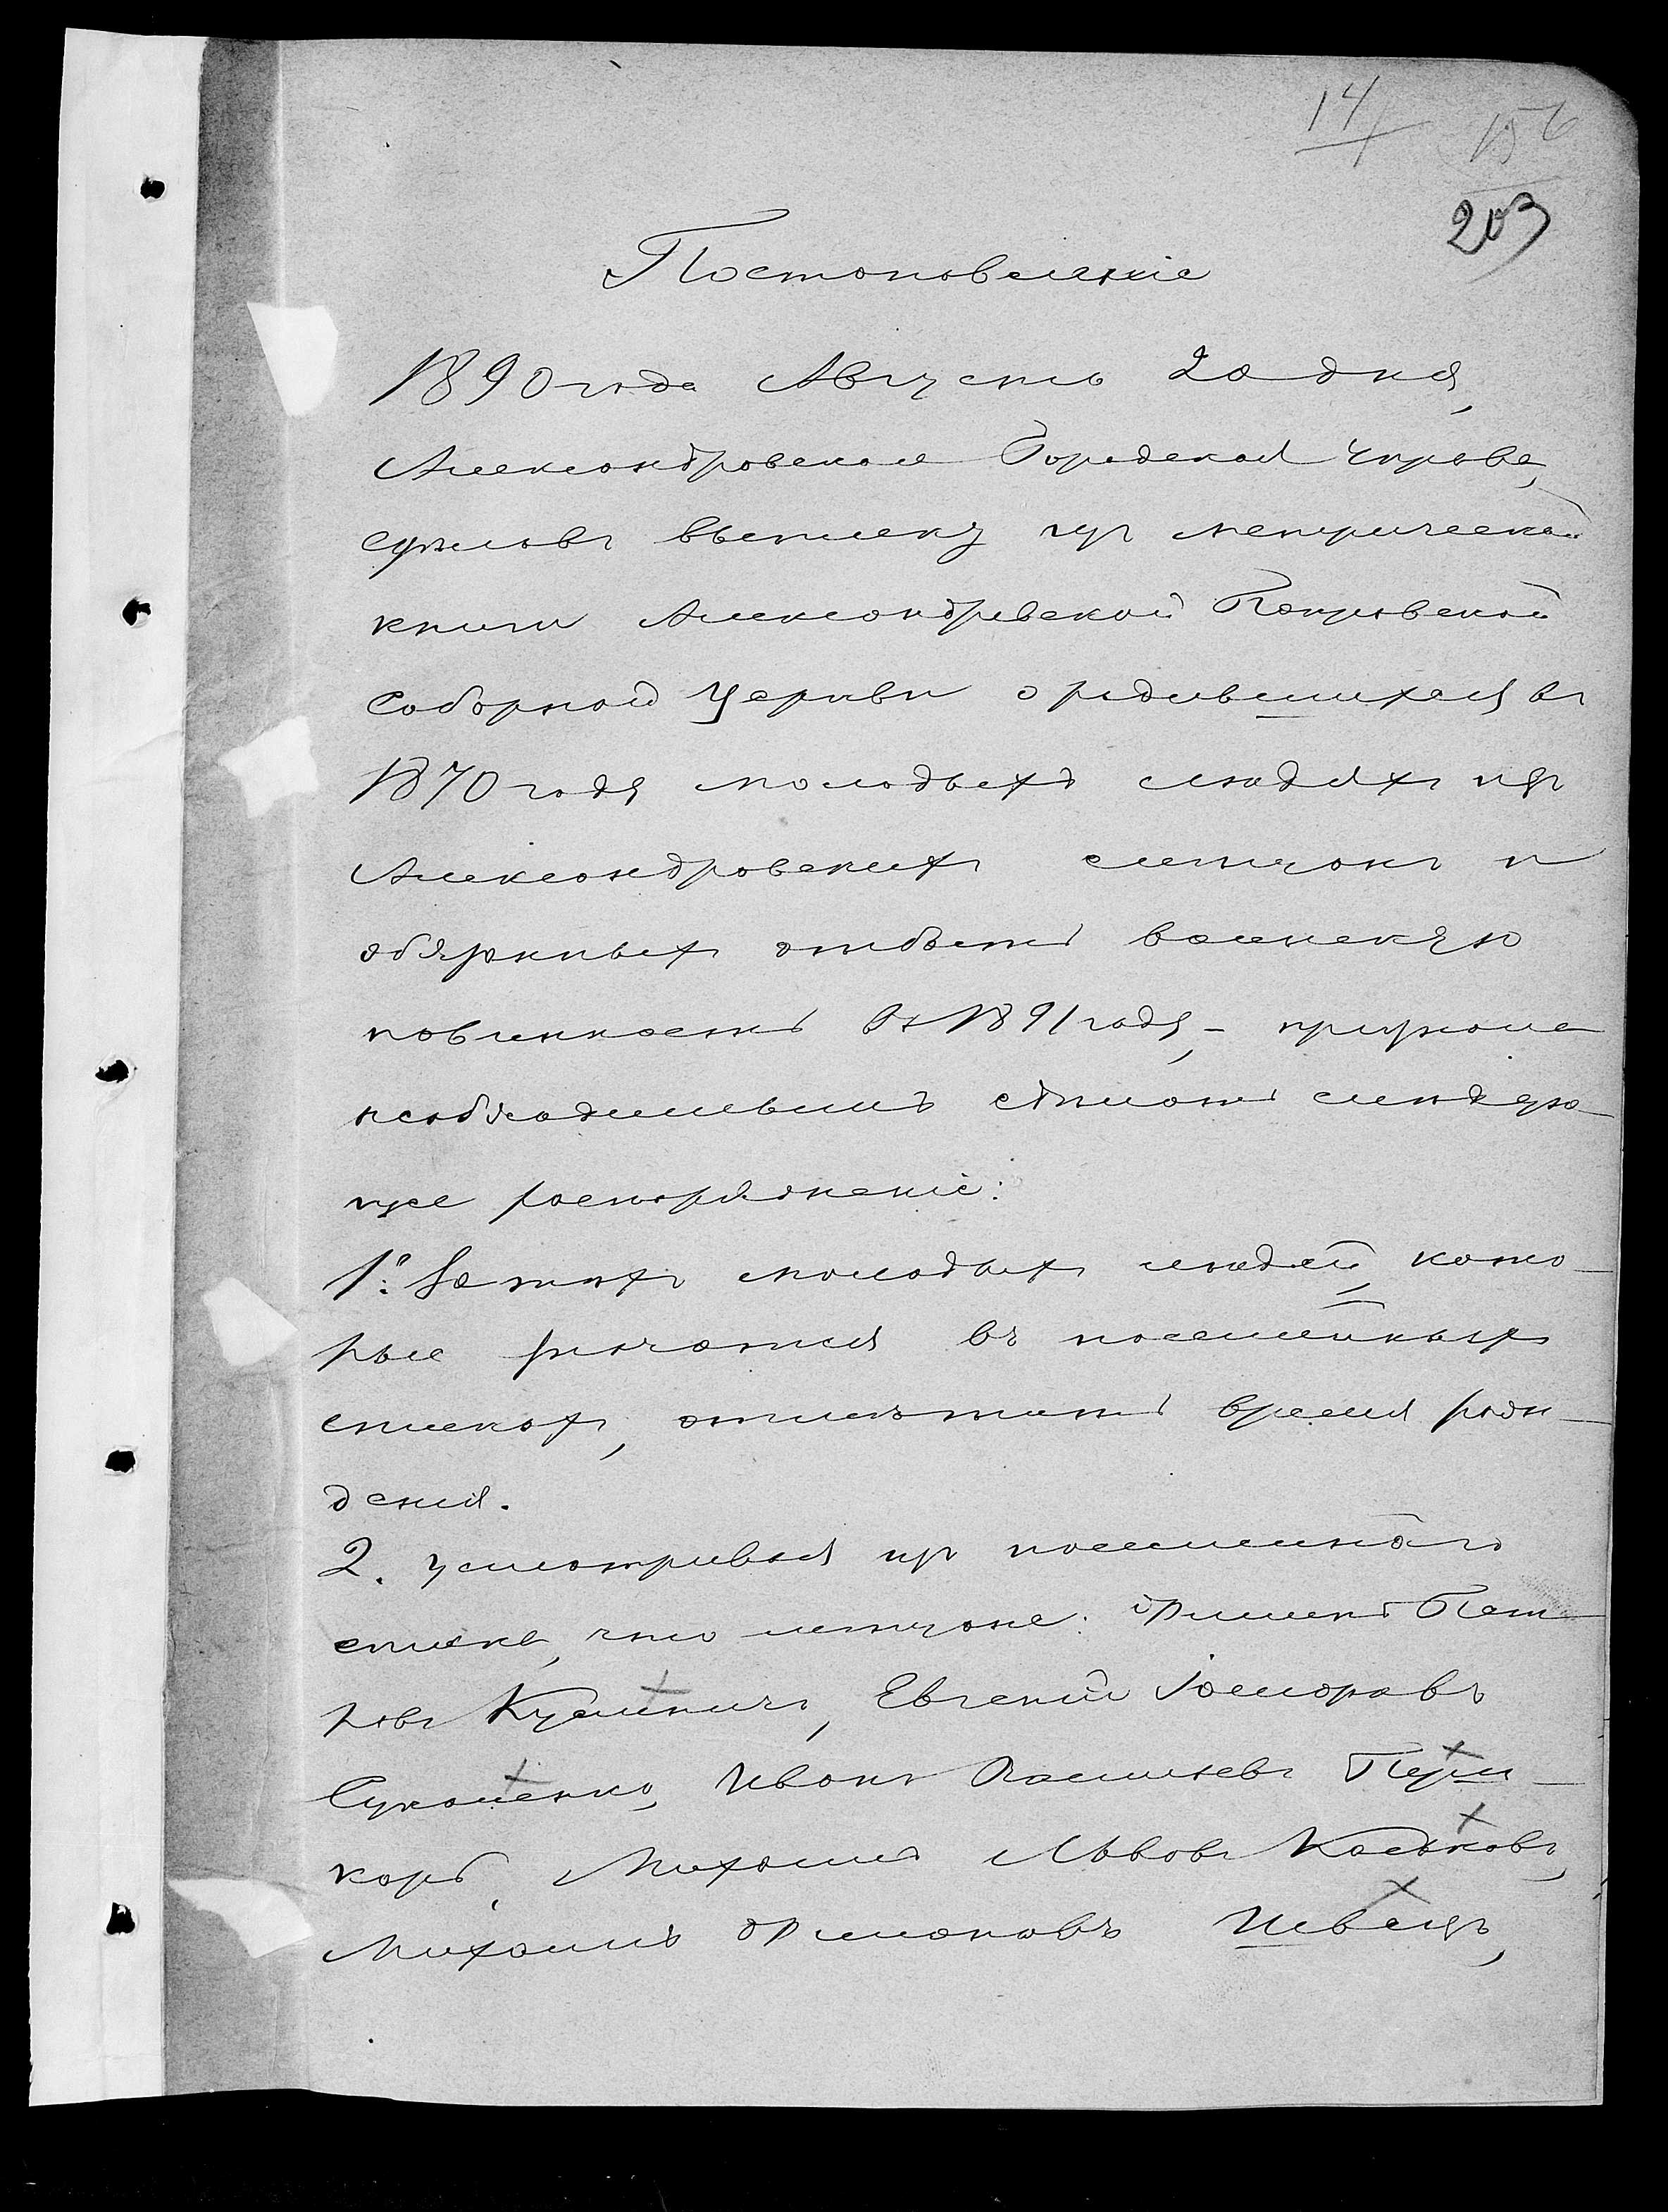 14
156
203
Постановленіе
1890 года Августа 20 дня,
Александровская Городская Управа,
сдѣлавъ выписку изъ метрической
книги Александровской Покровской
Соборной Церкви о родившихся въ
1870 году молодыхъ людяхъ изъ
Александровскихъ мѣщанъ и
обязанныхъ отбыть воинскую
повинность въ 1891 году, – признала
необходимымъ сдѣлать слѣдую-
щее распоряженіе:
1. За тѣхъ молодыхъ людей, кото-
рые значатся въ посемейныхъ
спискахъ, отмѣтить время рож-
денія.
2. Усматривая изъ посемейнаго
списка, что мѣщане: Филипъ Пет-
ровъ Кузменко, Евгеній
Сукаченко, Иванъ Васильевъ Пуш-
карь, Михаилъ Львовъ Касьяновъ,
Михаилъ Филиповъ Швецъ,